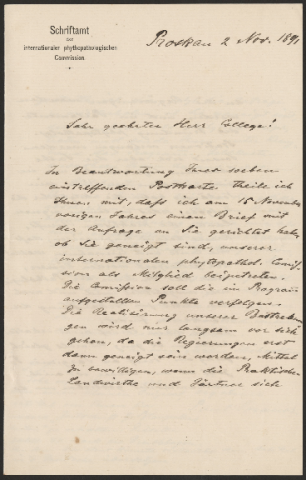 Schriftamt
der
internationaler phytopathologischer
Commission
Proskau 2 Nov. 1891
Sehr geehrter Herr College!
In Beantwortung Ihrer soeben
eintreffenden Postkarte theile ich
Ihnen mit, daß ich am 15 November
vorigen Jahres einen Brief mit
der Anfrage an Sie gerichtet habe,
ob Sie geneigt sind, unserer
internationalen phytopathol. Comis-
sion als Mitglied beizutreten.
Die Comission soll die im Program
aufgestellten Punkte verfolgen.
Die Realisirung unserer Bestrebun
gen wird nur langsam vor sich
gehen, da die Regierungen erst
dann geneigt sein werden, Mittel
zu bewilligen, wenn die Praktischen
Landwirthe und Gärtner sich